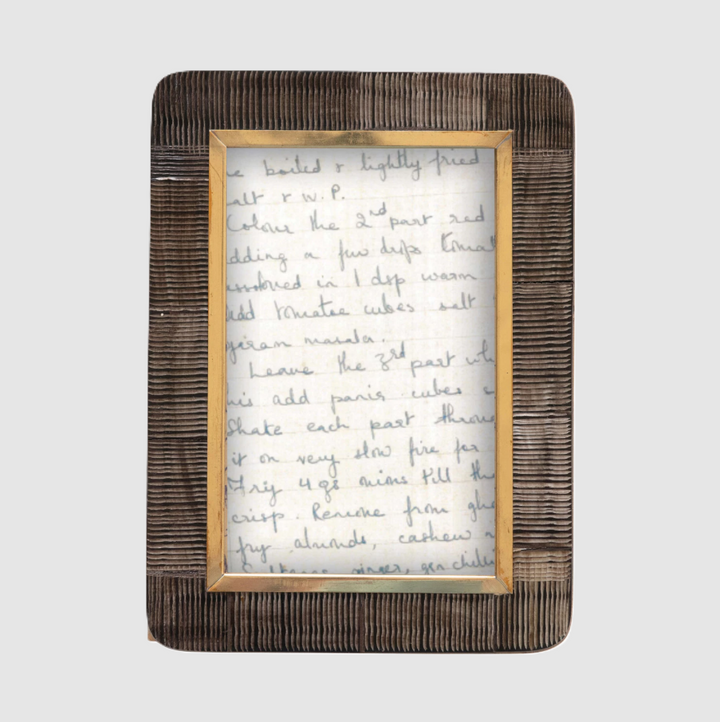 e boiled & lightly fried
alt & W.P.
Colour the 2nd part red
dding a few drps tomat
in 1 dsp warm
add tomatoe cubes salt
garam masala.
Leave the 3rd part wh
his add panir cubes
Shake each part throu
it on very slow fire for
Fry 4 gs onions till th
crisp. Remove from ghe
fry almonds, cashew n
Sultanas, ginger, grn chilli